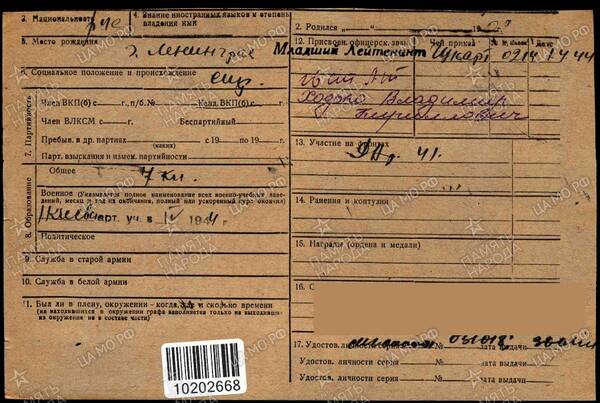 3. Национальность рус
4. Знание иностранных языков и степень владения ими
5. Место рождения г. Ленинград
6. Социальное положение и происхождение служ.
7. Партийность
Член ВКП(б) с г., п/б. № Канд. ВКП(б) с г.
Член ВЛКСМ с г. Беспартийный
Пребыв. в др. партиях с 19 по 19 г.
(каких)
Парт. взыскания и измен. партийности
8. Образование
Общее 7 кл.
Военное (Указывать полное наименование всех военно-учебных заведений, месяц и год их окончания, полный или ускоренный курс окончил)
арт. уч. в IV 1944 г.
Политическое
9. Служба в старой армии
10. Служба в белой армии
11. Был ли в плену, окружении - когда, где и сколько времени
(на находившихся в окружении графа заполняется только на выходивших из окружения не в составе части)
2. Родился " " 19 г.
12. Присвоен. офицерск. зван. Чей приказ №№ приказ. Дата
Младший Лейтенант 0214 1 4 44
Ходько Владимир
Кириллович
13. Участие на фронтах
41.
14. Ранения и контузии
15. Награды (ордена и медали)
16. С
17. Удостов. личности серия № дата выдачи
Удостов. личности серия № дата выдачи
Удостов. личности серия № дата выдачи
10202668
ПАМЯТЬ НАРОДА
ЦАМО.РФ